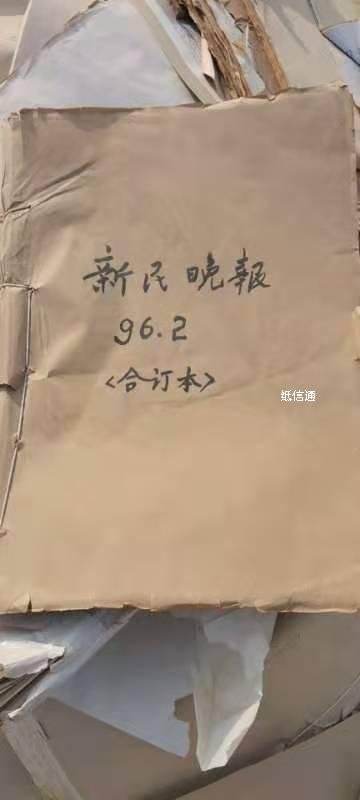 新民晚报
96.2
<合订本>
纸信通